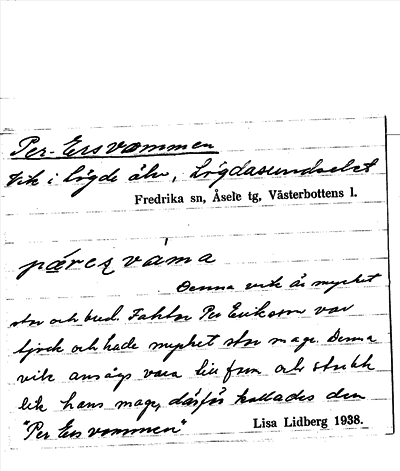 Per-Ersvammen
Vik i Lögde älv, Lögdasundselet
Fredrika sn, Åsele tg, Västerbottens l.
våma
Denna vik är mycket
stor och bred. Faktor Per Erikson var
tjock och hade mycket stor mage. Denna
vik ansågs vara till form och storlek
lik hans mage, därför kallades den
"Per Ers vammen"
Lisa Lidberg 1938.